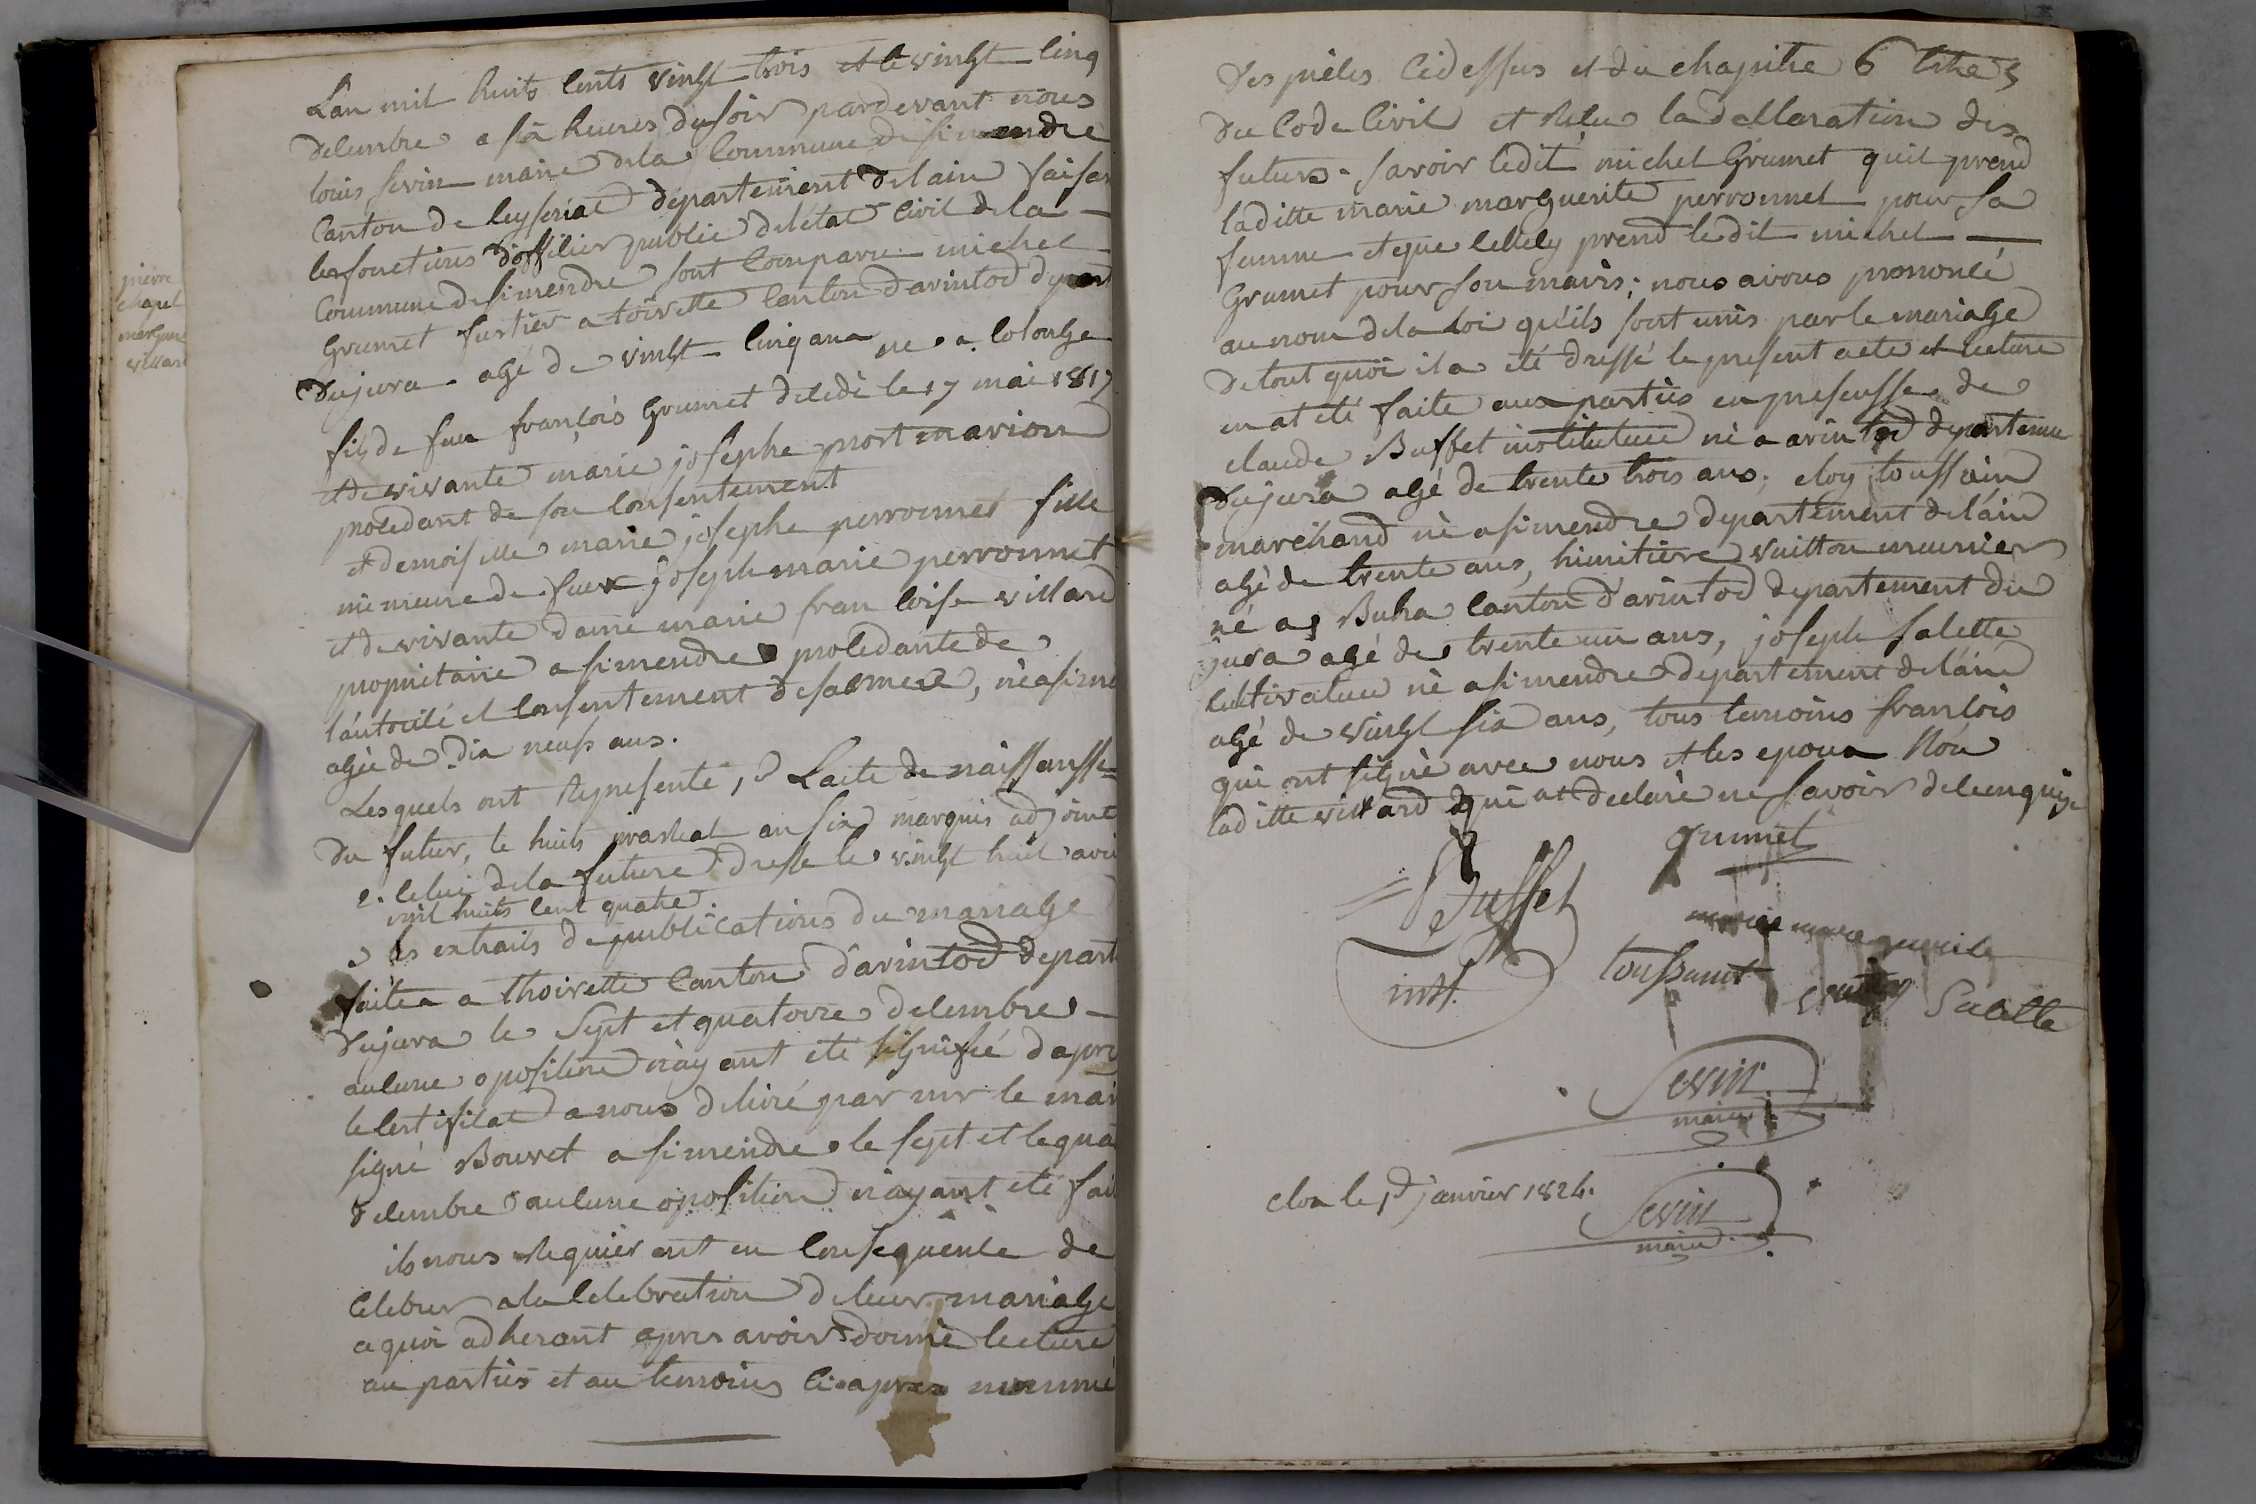 pierre
chapel
margue
villard
Lan mil huits cents vingt trois et le vingt cinq
decembre a six heures du soir pardevant nous
louis sevin maire dela Commune de simandre
Canton de ceyseriat departement delain faisan
les fonctions d'officier public de létat Civil de la
Commune de simendre sont Comparu michel
Grumet fustier a toirette Canton darintod depart
Dujura agé de vingt cinq ans né a Colonge
fils de feu françois Grumet decedé le 17 mai 1817
et de vivante marie josephe mort marion
procedant de son Consentement
et demoiselle marie josephe perronnet fille
mineure de feu joseph marie perronnet
et de vivante dame marie francoise villard
propriétaire a simendre procedante de
l'autorité et Consentement de sa mere, né a sime
agée de dix neufs ans.
Lesquels ont Representé, Lacte de naissansse
du futur, le huits prastial an six marquis adjoint
2. Celui dela future dresse le vingt huit avri
mil huits cent quatre.
les extraits de publications du mariage
faites a thoirette Canton d'arintod depart
Dujura le Sept et quatorze decembre
aucune oposition n'ay ant eté signifié dapre
le Certificat a nous delivré par mr le mair
signé Bouvet a simendre le sept et le qua
decembre aucune oposition n'ayant eté fai
ils nous Requier ent en Consequence de
Celebrer a la Celebration de leur mariage
a quoi adherant apres avoir donné lecture
au parties et au temoins Ci apres nommé
des pièces Cidessus et du chapitre 6 titre 5
du Code Civil et Relu la decllaration des
futurs. savoir ledit michel Grumet quil prend
laditte marie marguerite perronnet pour sa
femme et que cellecy prend ledit michel
Grumet pour son maris; nous avons prononcé
au nom dela loi qu'ils sont unis par le mariage
de tout quoi il a eté dressé le present acte et lecture
en at eté faite aux parties en presensse de
claude Buffet instituteur né a arintod departeme
Dujura agé de trente trois ans, eloy toussain
marchand né a simendre departement de lain
agé de trente ans, himitière vuitton meunier
né a Buha Canton d'arintod departement du
jura agé de trente un ans, joseph salette
Cultivateur né a simendre departement de lain
agé de vingt six ans, tous temoins françois
qui ont signé avec nous et les epoux Non
laditte villard qui at declaré ne savoir de ce enquise
Buffet
inst.
grumet
marie marguerite
toussaint
vuitton
Salette
Sevin
maire
clos le 1er janvier 1824.
Sevin
maire